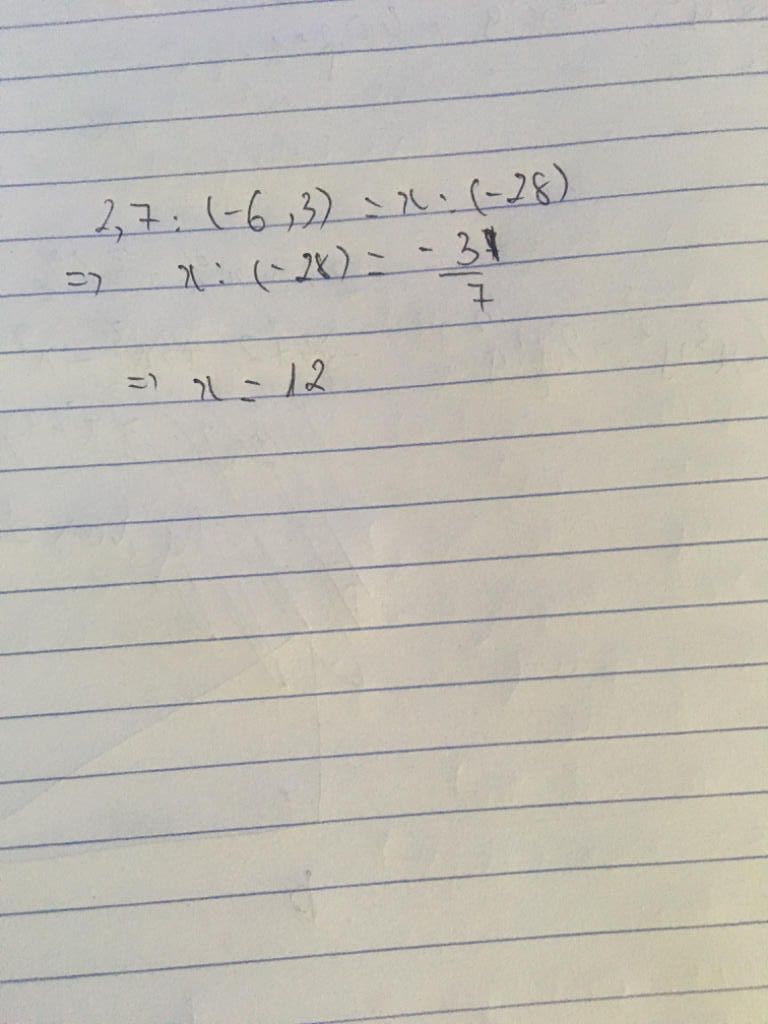 2,7 : (-6,3) = x : (-28)
=> x : (-28) = -3/7
=> x = 12